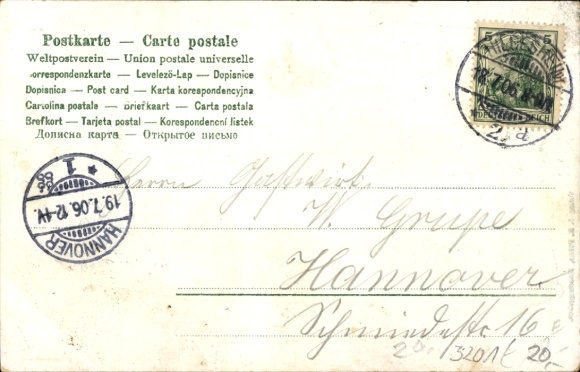 Postkarte — Carte postale
Weltpostverein — Union postale universelle
Korrespondenzkarte — Levelezö-Lap — Dopisnice
Dopisnica — Post card — Karta korespondencyjna
Cartolina postale — Briefkaart — Carta postala
Brefkort — Tarjeta postal — Korespondencni listek
Дописна карта — Открытое письмо
5 5
DEUTSCHES REICH
HILDESHEIM
18.7.06.
2 a
* 1
19.7.06.12-1V.
HANNOVER
Herrn Gastwirt
W. Grupe
Hannover
Schmiedestr 16
20.
3201
20,-